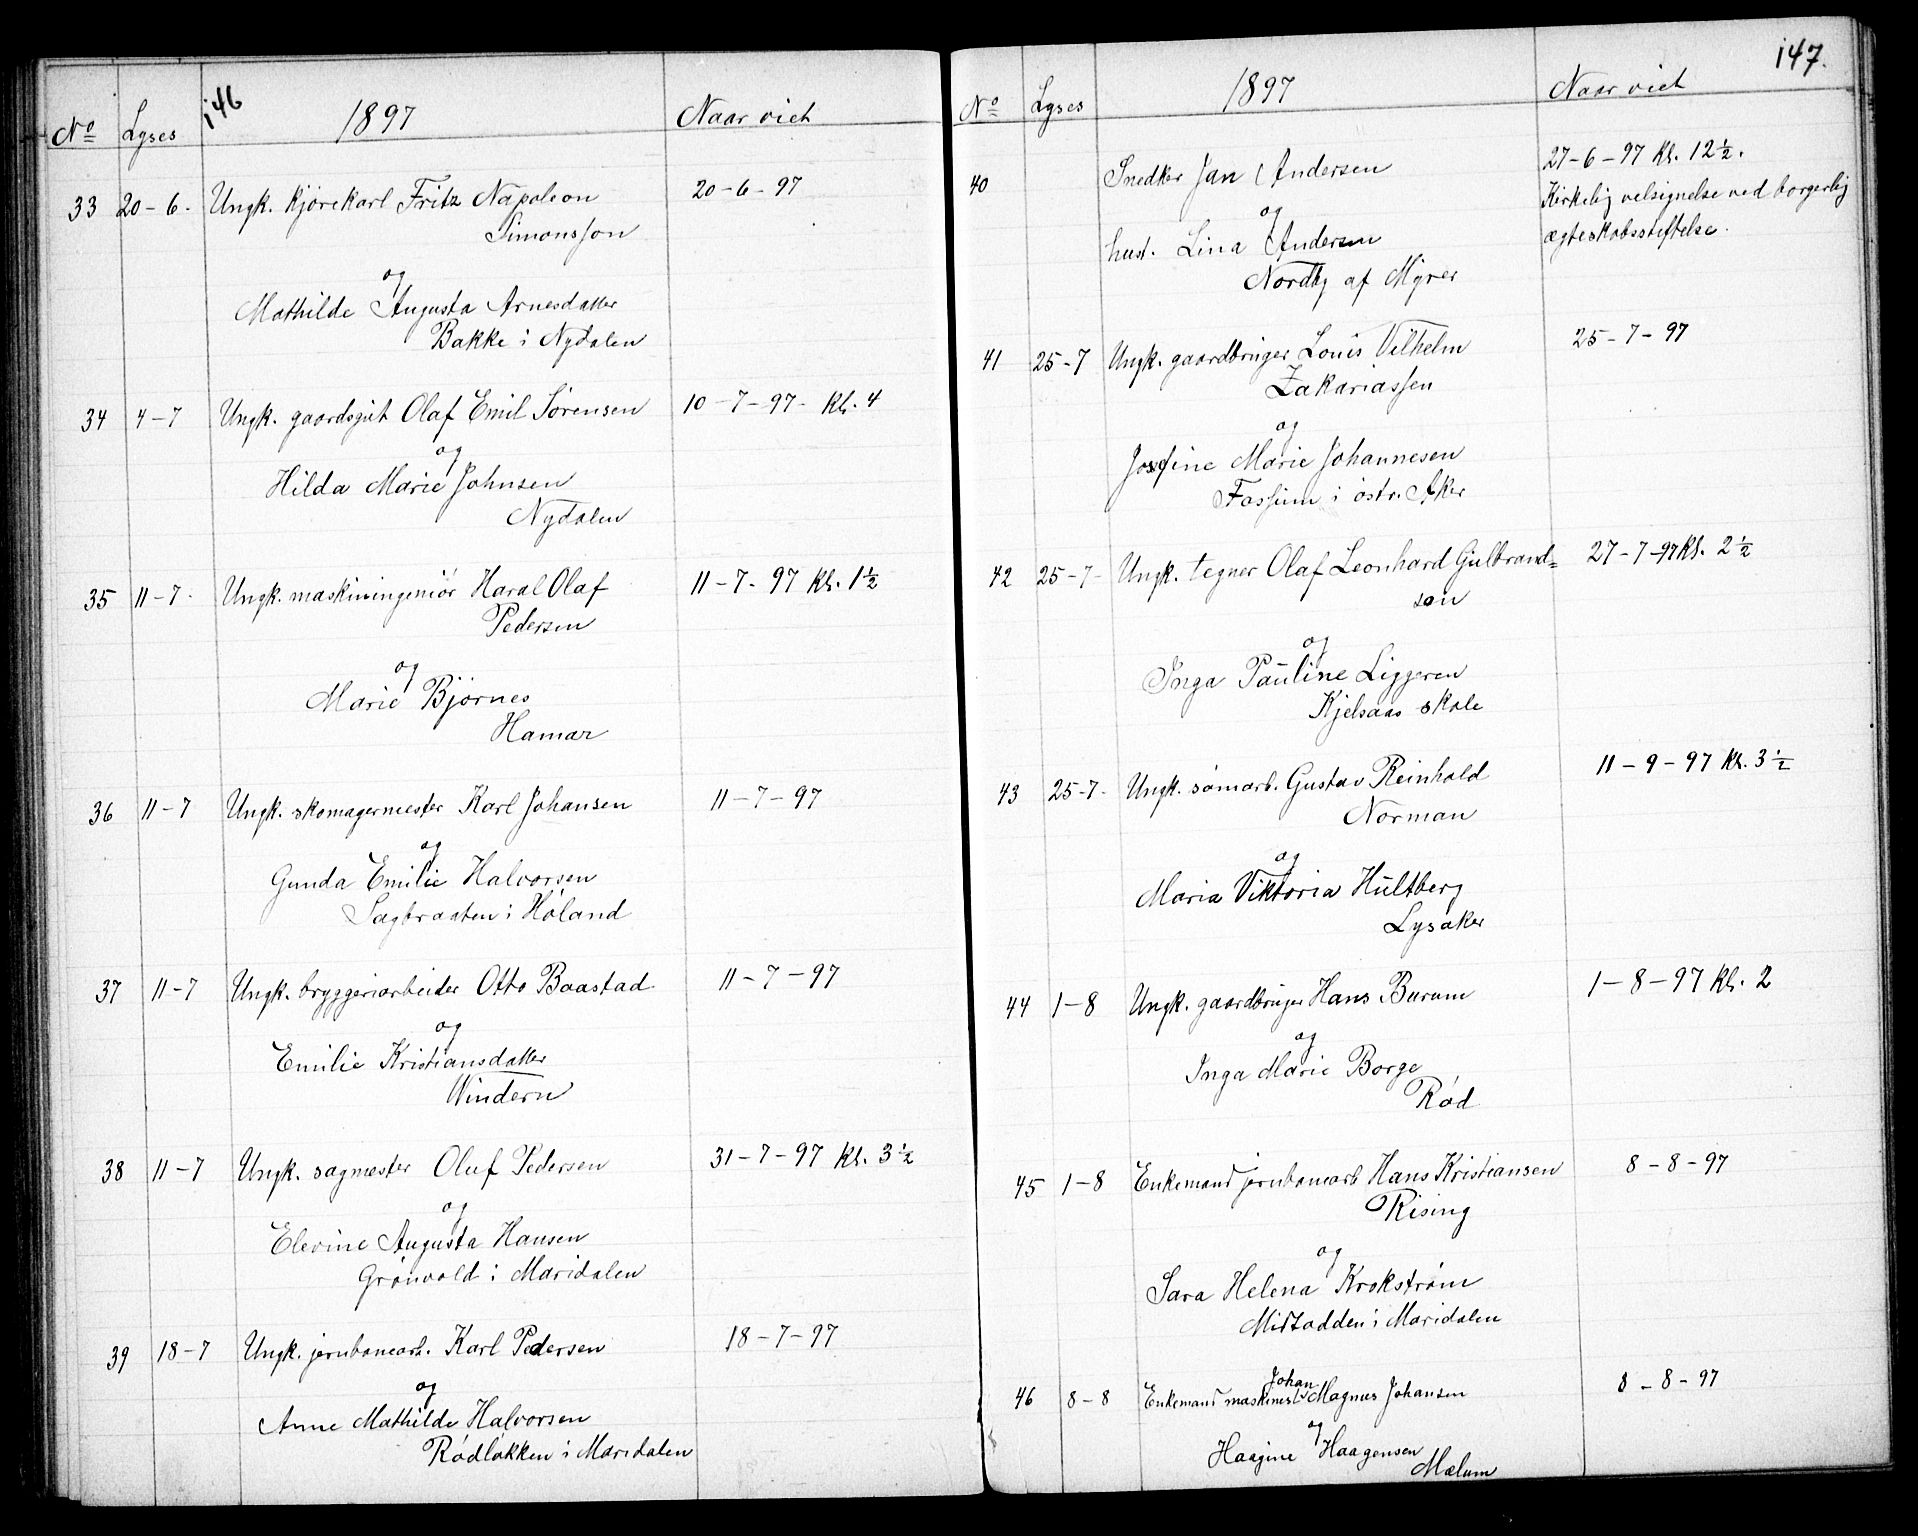 146
No Lyses 1897 Naar viet
33 20-6- Ungk. kjørekarl Fritz Napoleon 20-6-97
Simonsson
og
Mathilde Augusta Arnesdatter
Bakke i Nydalen
34 4-7 Ungk. gaardsgut Olaf Emil Sørensen 10-7-97- Kl. 4
og
Hilda Marie Johnsen
Nydalen
35 11-7- Ungk. maskiningeniør Haral Olaf 11-7-97 Kl. 1½
Pedersen
og
Marie Bjørnes
Hamar
36 11-7 Ungk. skomagermester Karl Johansen 11-7-97
og
Gunda Emilie Halvorsen
Sagbraaten i Høland
37 11-7 Ungk. bryggeriarbeider Otto Baastad 11-7-97
og
Emilie Kristiansdatter
Vindern
38 11-7 Ungk. sagmester Oluf Pedersen 31-7-97 Kl. 3½
og
Elevine Augusta Hansen
Grønvold i Maridalen
39 18-7 Ungk. jernbanearb. Karl Pedersen 18-7-97
og
Anne Mathilde Halvorsen
Rødløkken i Maridalen
147.
No Lyses 1897 Naar viet
40 Snedker Jan Andersen 27-6-97 Kl. 12½.
og Kirkelig velsignelse ved borgerlig
hust. Lina Andersen ægteskabsstiftelse.
Nordby af Myrer
41 25-7 Ungk. gaardbruger Louis Vilhelm 25-7-97
Zakariassen
og
Josefine Marie Johannesen
Fossum i østr. Aker
42 25-7- Ungk. tegner Olaf Leonhard Gulbrand= 27-7-97 Kl. 2½
sen
og
Inga Pauline Liggeren
Kjelsaas skole
43 25-7- Ungk. sømarb. Gustav Reinhold 11-9-97 Kl. 3½
Norman
og
Maria Viktoria Hultberg
Lysaker
44 1-8 Ungk. gaardbruger Hans Burum 1-8-97 Kl. 2
og
Inga Marie Borge
Rød
45 1-8 Enkemand jernbanearb Hans Kristiansen 8-8-97
Rising
og
Sara Helena Krokstrøm
Midtodden i Maridalen
Johan
46 8-8 Enkemand maskinist Magnus Johansen 8-8-97
og
Haagine Haagensen
Mælum